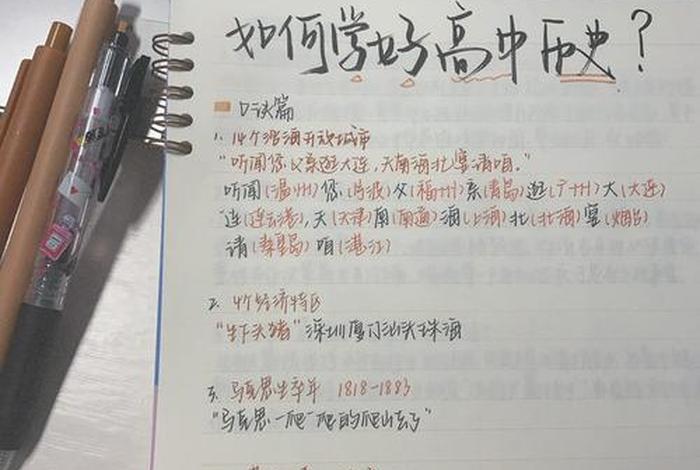 如何学好高中历史？
口诀篇
1. 14个沿海开放城市
"听闻您父亲逛大连，天南海北宴请咱。"
听闻(温州)您(宁波)父(福州)亲(青岛)逛(广州)大(大连)
连(连云港)，天(天津)南(南通)海(上海)北(北海)宴(烟台)
请(秦皇岛)咱(湛江)
2. 4个经济特区
深圳厦门汕头珠海
3. 马克思生卒年 1818-1883
"马克思一爬一爬的爬山去了"